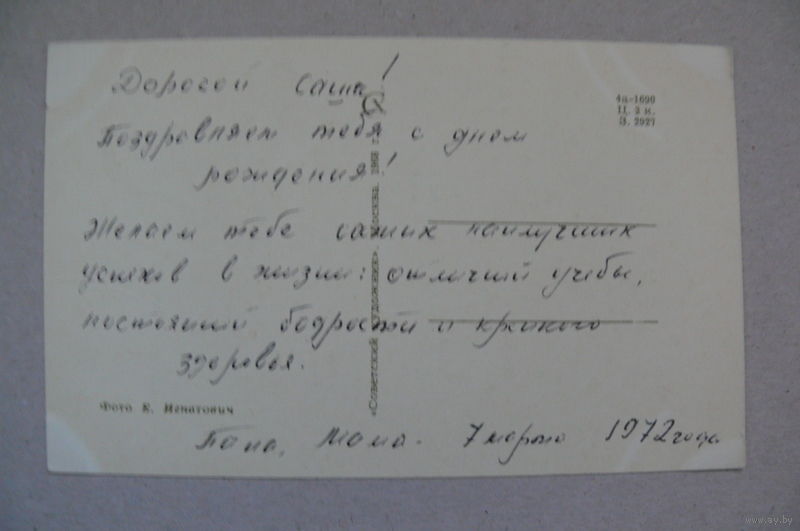 Дорогой Саша!
Поздравляем тебя с днем
рождения!
Желаем тебе самых наилучших
успехов в жизни: отличной учебы,
постоянной бодрости и крепкого
здоровья.
Папа, Мама. 7 марта 1972 года
4а-1690
Ц. 3 к.
З. 2927
«Советский художник». Москва. 1968 г.
Фото Е. Игнатович
www.ay.by